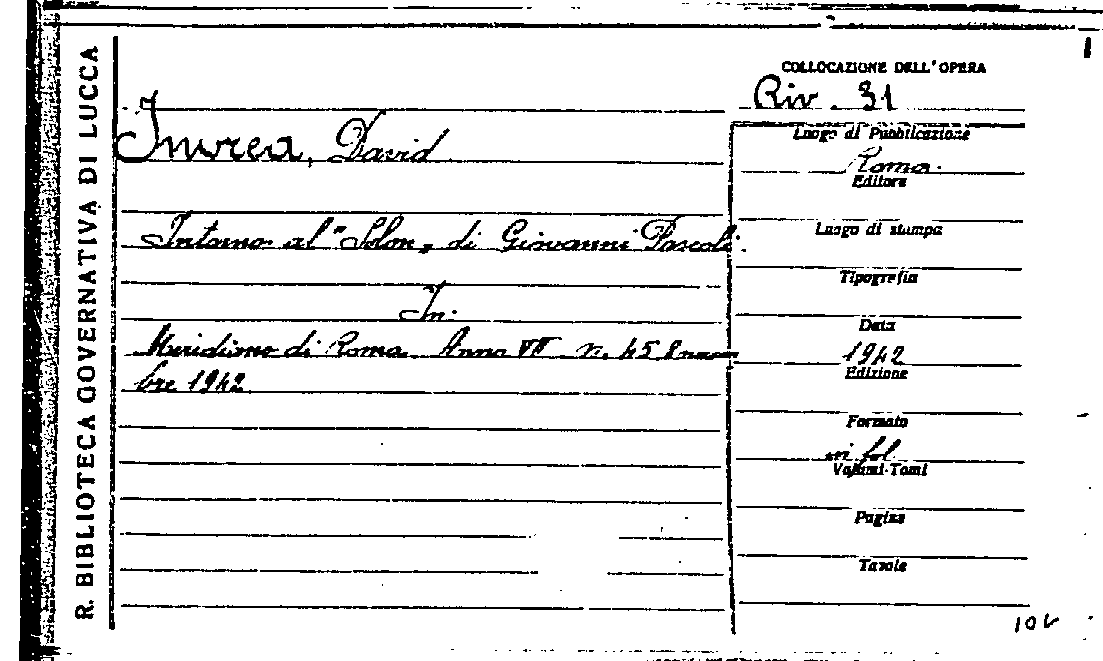 R. BIBLIOTECA GOVERNATIVA DI LUCCA
COLLOCAZIONE DELL'OPERA
Riv. 31
Inurea, David
Luogo di Pubblicazione
Roma.
Editore
Intorno al "Solon" di Giovanni Pascoli.
Luogo di stampa
Tipografia
In:
Data
Meridiano di Roma. Anno VII n. 45 8 novem
1942
bre 1942
Edizione
Formato
in fol
Volumi-Tomi
Pagine
Tavole